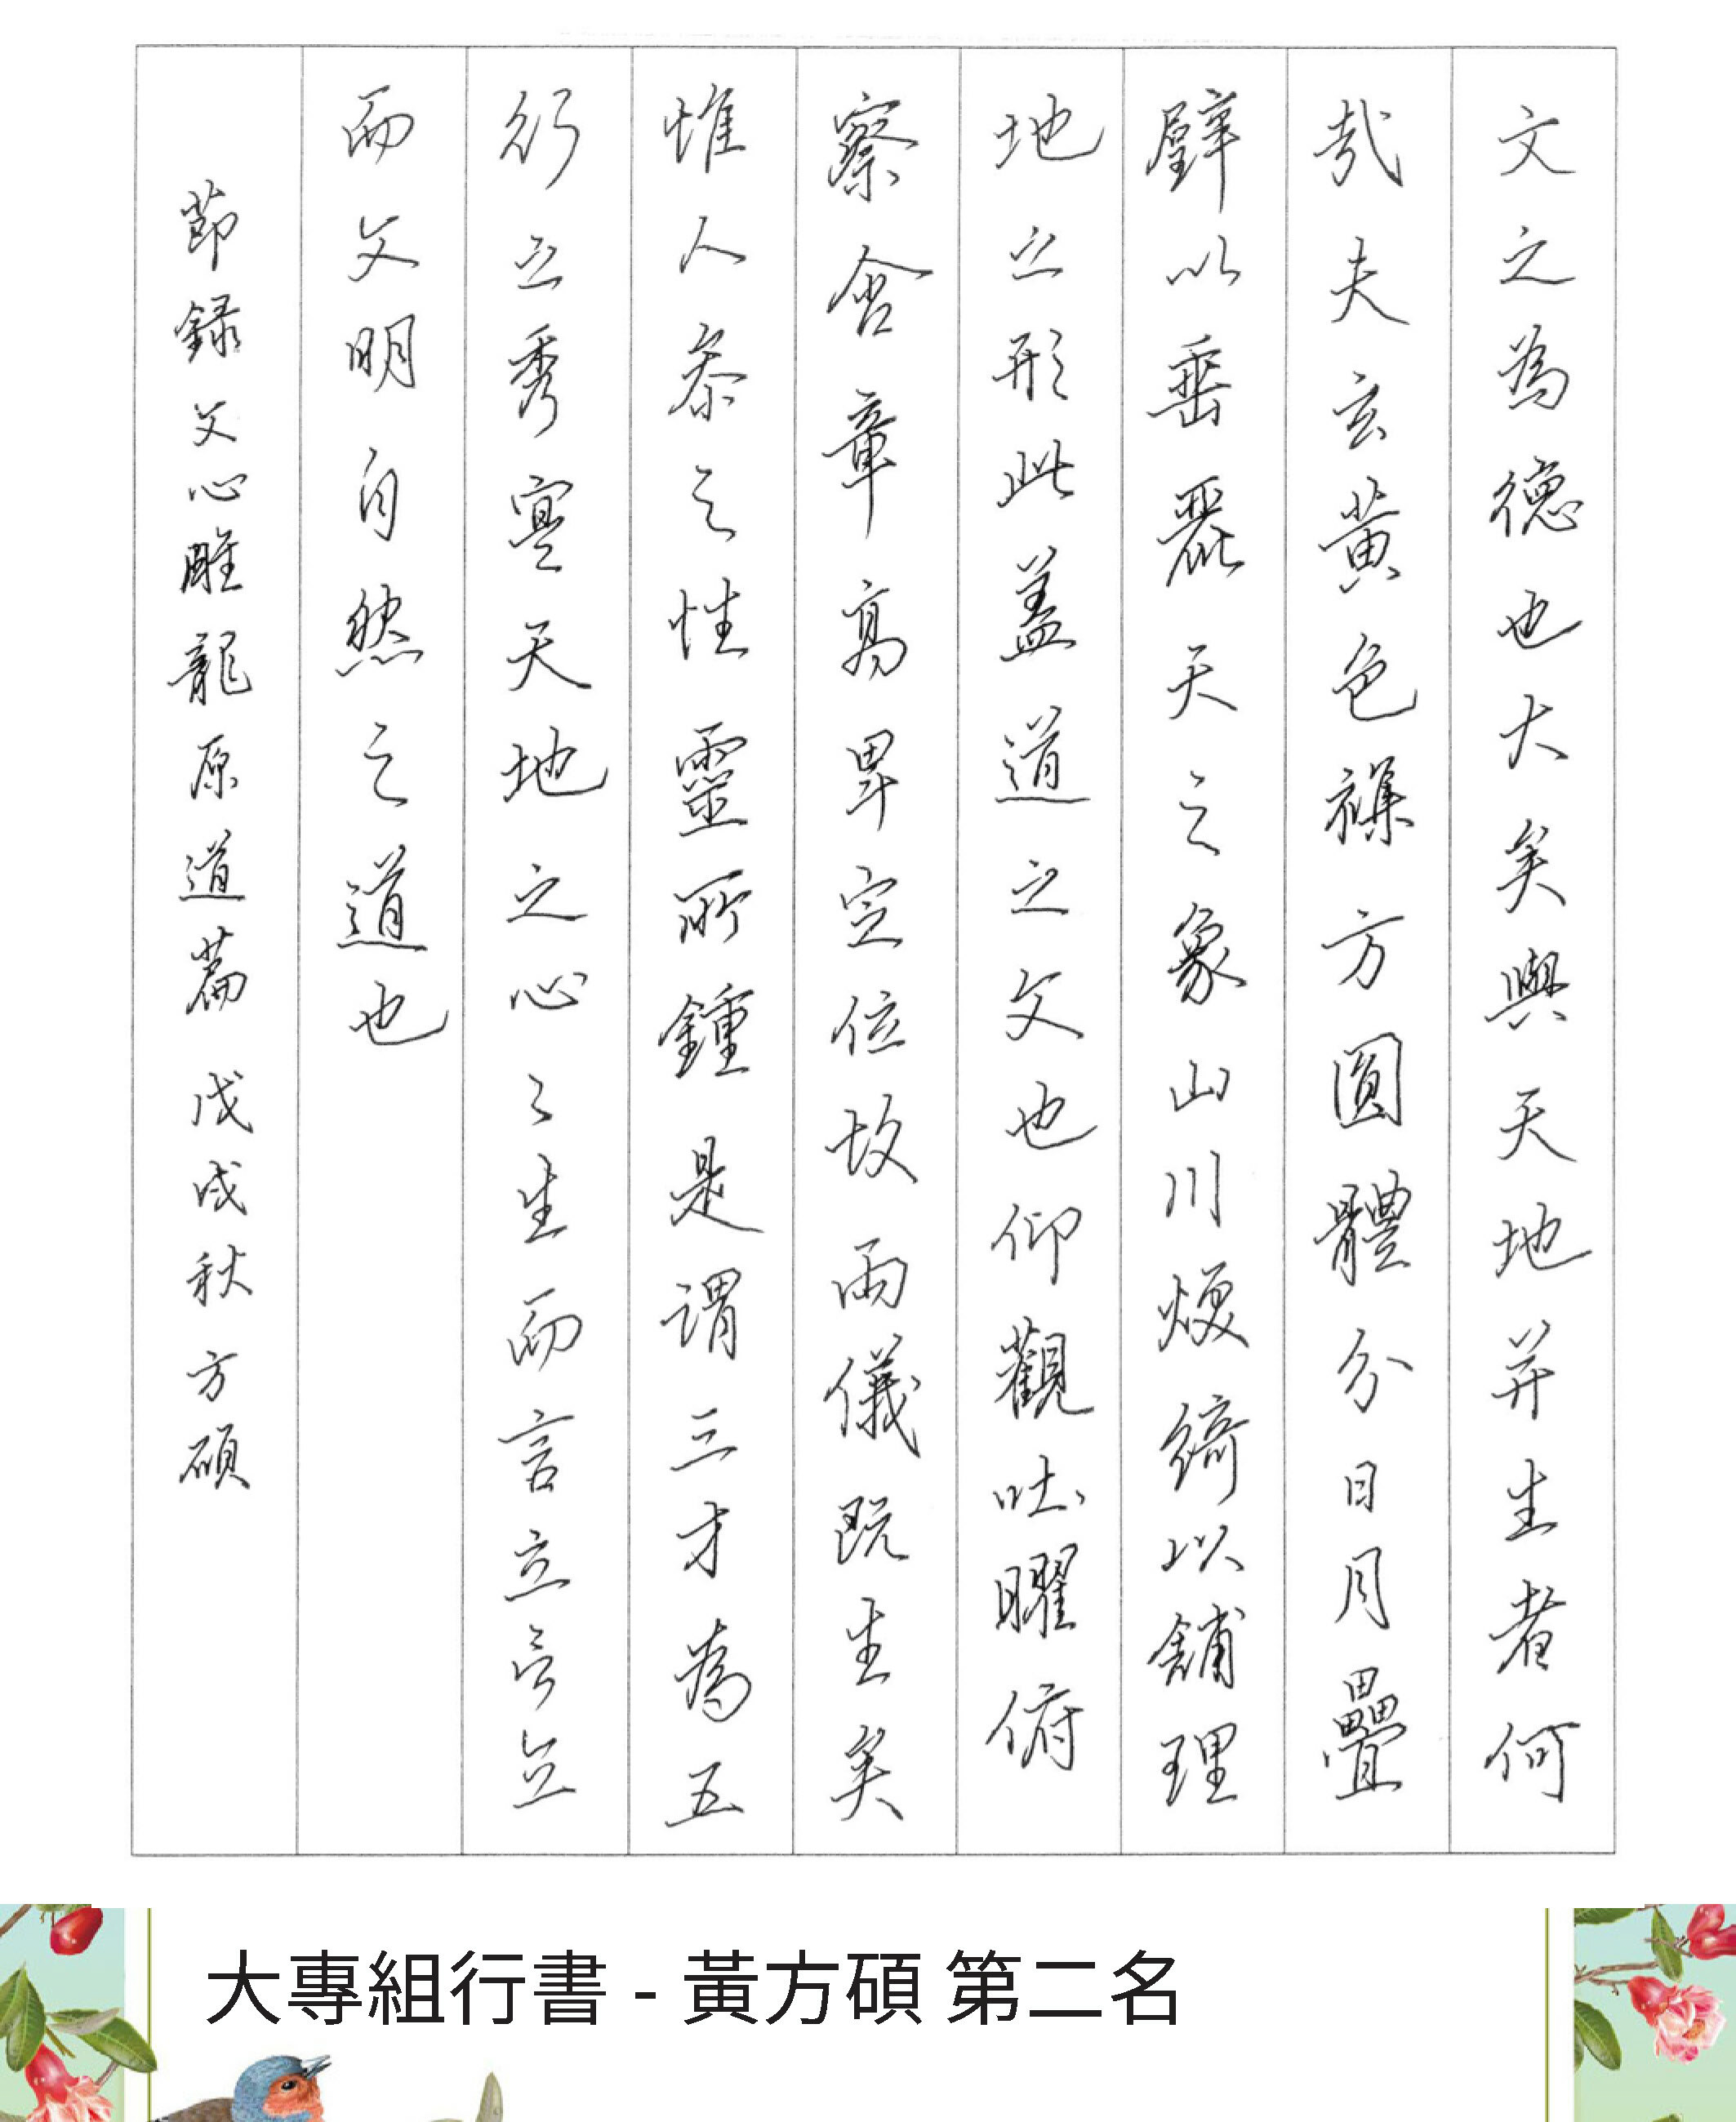 文之為德也大矣與天地并生者何
哉夫玄黃色襍方圓體分日月疊
璧以垂麗天之象山川煥綺以鋪理
地之形此蓋道之文也仰觀吐曜俯
察含章高卑定位故兩儀既生矣
惟人參之性靈所鍾是謂三才為五
行之秀寔天地之心心生而言立言立
而文明自然之道也
節錄文心雕龍原道篇 戊戌秋 方碩
大專組行書 - 黃方碩 第二名